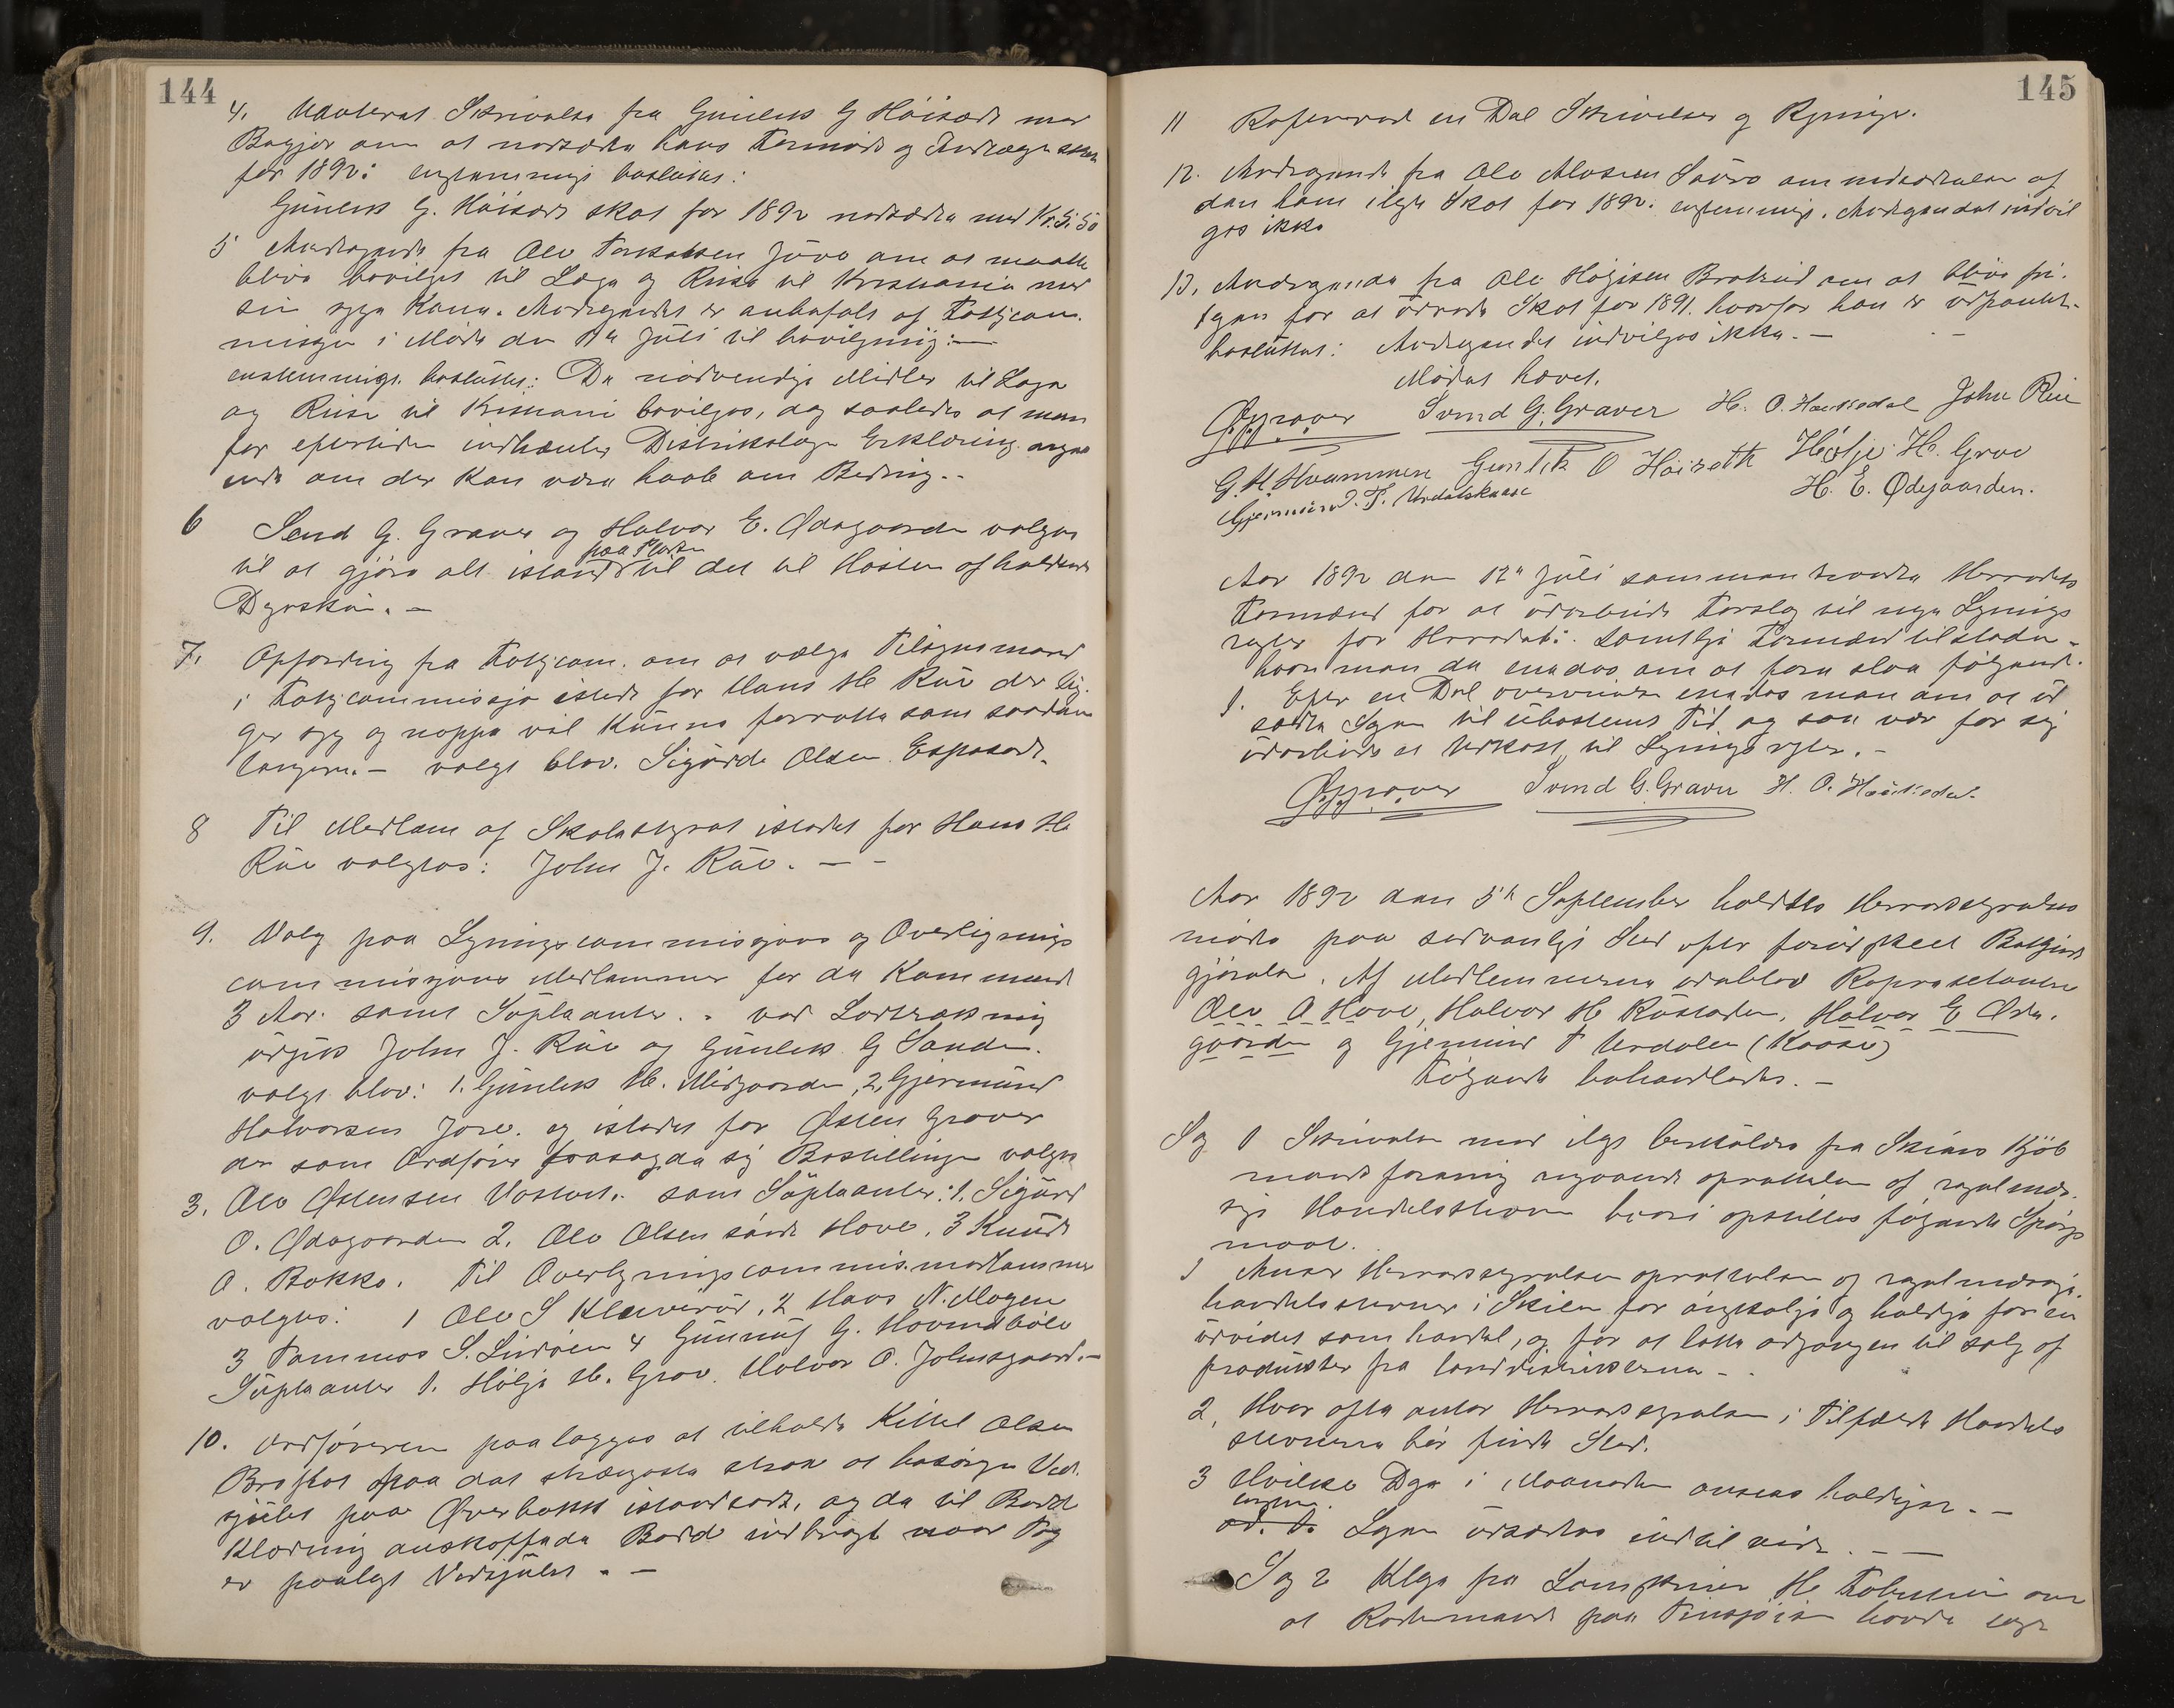 144
4. Skrivelse fra Gunleik G Höisæt med
Begjær om at nedsætte hans Formues og Indtægts skat
for 1892: enstemmigt besluttet:
Gunleik G. Höisæt skat for 1892 nedsættes med Kr. 5,50
5 Andragende fra Ole Torkelsen Juve om at maatte
blive bevilget til Læge og Reise til Kristiania med
sin syge Kone. Andragendet er anbefalt af Fattigcom.
missjon i Møde den Juli til bevilgning: —
enstemmigt besluttet: De nødvendige Midler til Læge
og Reise til Kristiania bevilges, dog saaledes at man
før efterhvert indhenter Distriktslæge Erklæring angaa
ende om der kan være haab om Bedring. -
6 Svend G. Graver og Halvor E. Ødegaarden valgtes
paa Pladsen
til at gjøre alt istand til det til Høsten afholdende
Dyrskue. —
7. Opfordring fra Fattigcom. om at vælge Tilsynsmand
i Fattigcommissjon istedet for Hans H. Rue der lig.
ger syg og neppe vil kunne forrette som saadan
længere. — valgt blev. Sigurd Olsen Espeset.
8 Til Medlem af Skolestyret istedet for Hans H.
Rue valgtes: John J. Rue. — -
9. Valg paa Ligningscommissjons og Overlignings
commissjons Medlemmer for de kommende
3 Aar. samt Suppleanter. - ved Lodtrækning
udgik John J. Rue og Gunleik G Sanden.
valgt blev: 1. Gunleik H. Midgaarden, 2, Gjermund
Halvorsen Jore. og istedet for Østen Graver
der som Ordfører frasagde sig Bestillingen valgtes
3. Ole Østensen Vaslet. som Suppleanter: 1. Sigurd
O. Ødegaarden 2. Ole Olsen søndr Hove, 3 Knud
A. Bakko. Til Overligningscommis. medlemmer
valgtes: 1 Ole S Kleverud, 2 Hans N. Mogen
3 Tommas S. Lurdien 4 Gunnuf G. Hovindbøle
Suppleanter 1. Hölje H. Grov. Halvor O. Johnsgaard. —
10. Ordføreren paalægges at tilholde Kittel Olsen
Brofot paa det strængeste strax at besørge Ved.
sjulet paa Øverbøkk istandsat, og de til Bord
klædning anskaffede Bord indbragt naar Tag
er paalagt Vedsjulet. —
145
11 Refereret en Del Skrivelser og Regninger.
12. Andragende fra Ole Olsen om nedsættelse af
den ham ilagte Skat for 1892. enstemmigt. Andragendet indvil
ges ikke
13. Andragende fra Ole Høljesen Brokrud om at blive fri.
tagen for at udrede Skat for 1891. hvorfor han er udpantet. -
besluttet: Andragendet indvilges ikke. —
Mødet hævet.
Svend G. Graver H. O. Haukedal John Rue
G. H. Hvammen Gunleik O Höisæth Hølje H. Grov
Gjermund. T. Urdalskaase H. E. Ødegaarden.
Aar 1892 den 12te Juli sammentraadte Herredets
Formænd for at udarbeide Forslag til nye Lignings
regler for Herredet: Samtlige Formænd tilstede -
hvor man da enedes om at fore slaa følgende.
1. Efter en Del overveielse enedes man om at ud
sætte Sagen til ubestemt Tid og saa vær for sig
udarbeide et Udkast til Ligningsregler. -
Svend G. Graver H. O. Haukedal.
Aar 1892 den 5te September holdtes Herredsstyrelses
møde paa sædvanlige Sted efter forudskeet Bekjendt
gjørelse. Af Medlemmerne udeblev Repræsetanterne
Ole A Hove, Halvor H Rustaden, Halvor E Øde.
gaarden og Gjermund T Urdalen (Kaase)
Følgende behandledes. —
Sag 1 Skrivelse med ilagt fra Skiens Kjøb
mandsforening angaaende oprettelse af regelmæs.
sige Handelsstevne hvori opstilles følgende Spørgs
maal.
1 Anser Herredsstyrelsen oprettelse af regelmæssige
handelsstevner i Skien for ønskelige og heldige for en
udvidet samhandel, og for at lette adgangen til salg af
produkter fra landdistrikterne - .
2, Hvor ofte antar Herredsstyrelsen i Tilfælde Handels
stevnerne bør finde Sted.
3 Hvilke Dage i Maaneden ansees heldigst. —
Sagen udsættes indtil videre. — —
Sag 2 Klage fra H. om
at paa havde